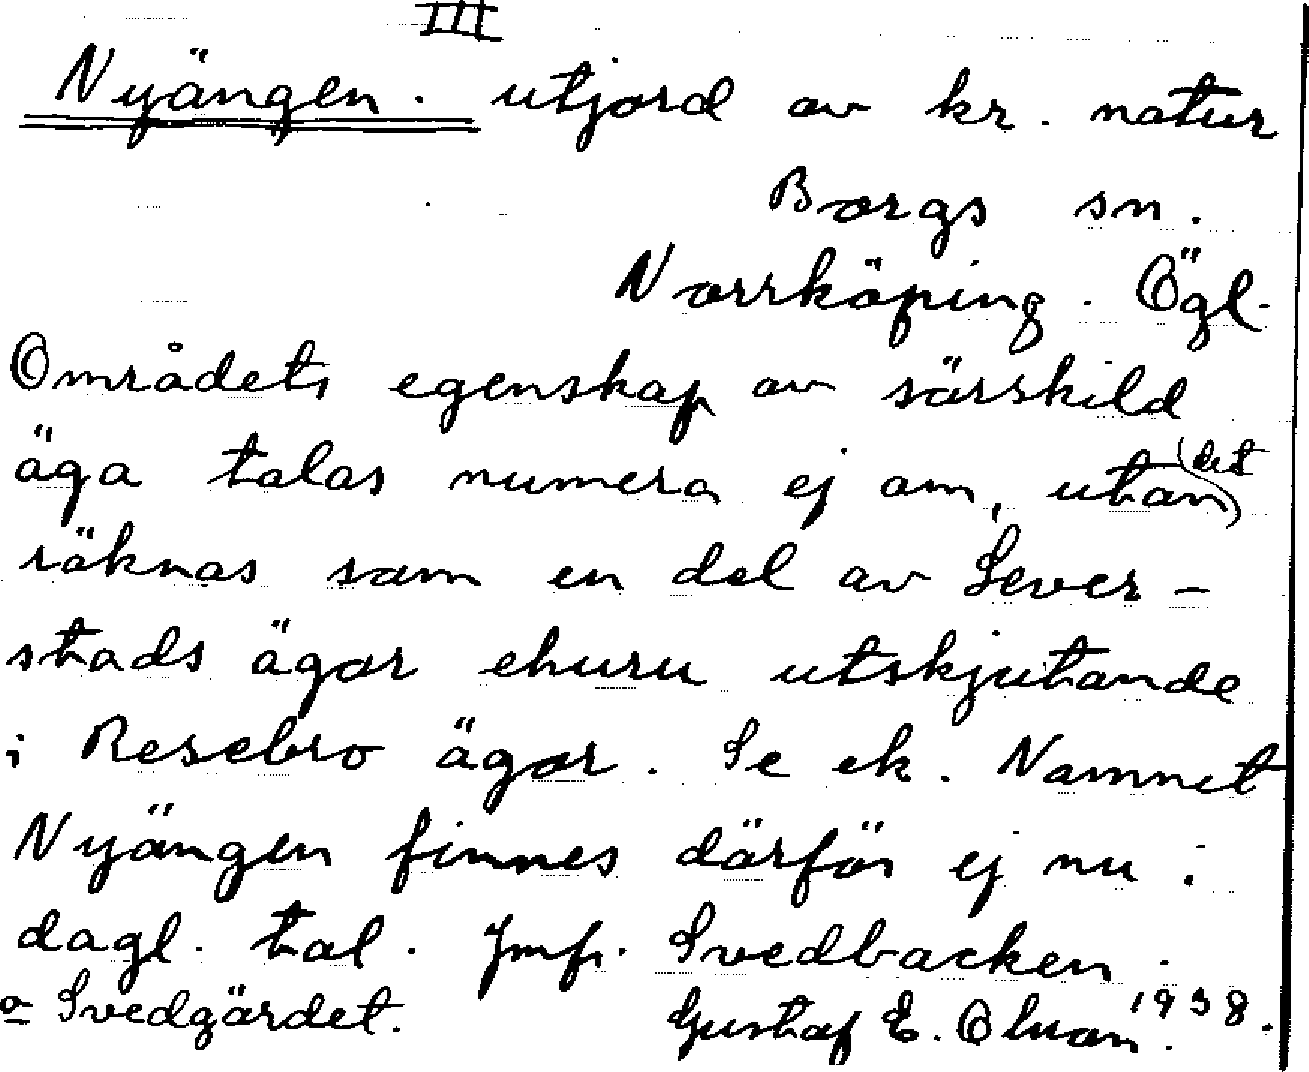 III
Nyängen. utjord av kr. natur
Borgs sn.
Norrköping. Ögl.
Områdets egenskap av särskild
äga talas numera ej om, utan det
räknas som en del av Sever-
stads ägor ehuru utskjutande
i Resebro ägor. Se ek. Namnet
Nyängen finnes därför ej nu i
dagl. tal. Jmf. Svedbacken
o Svedgärdet.
Gustaf E. 1938.